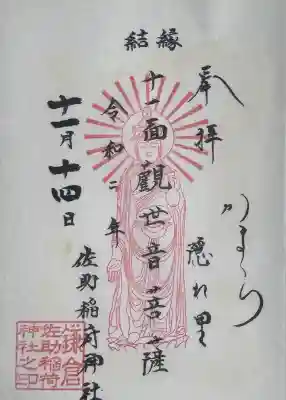 結縁
奉拝
かまくら
隠れ里
十一面観世音菩薩
令和二年
十一月十四日
佐助稲荷神社
鎌倉
佐助稲荷
神社之印